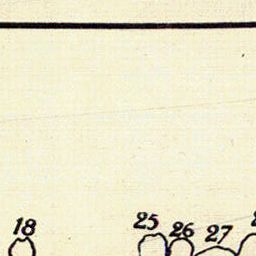 18 25 26 27